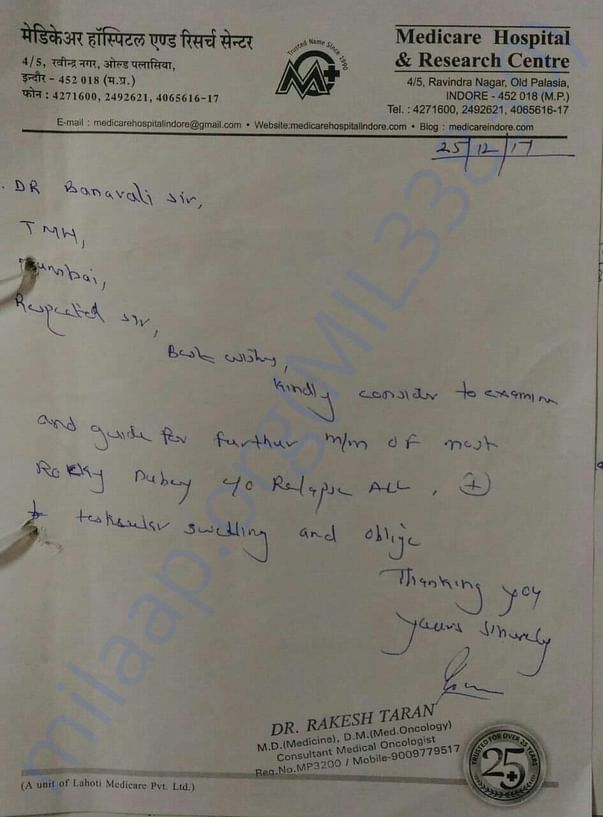 मेडिकेअर हॉस्पिटल एण्ड रिसर्च सेन्टर
4/5, रवीन्द्र नगर, ओल्ड पलासिया,
इन्दौर - 452 018 (म.प्र.)
फोन : 4271600, 2492621, 4065616-17
Trusted Name Since 1990
Medicare Hospital
& Research Centre
4/5, Ravindra Nagar, Old Palasia,
INDORE - 452 018 (M.P.)
Tel. : 4271600, 2492621, 4065616-17
E-mail : medicarehospitalindore@gmail.com • Website:medicarehospitalindore.com • Blog : medicareindore.com
25/12/17
DR Banavali sir,
TMH,
Mumbai,
Respected sir,
Best wishes,
Kindly consider to examine
and guide for further m/m of
Rocky Dubey c/o Relapse ALL, +
testicular swelling and oblige
Thanking you
yours sincerely
DR. RAKESH TARAN
M.D.(Medicine), D.M.(Med.Oncology)
Consultant Medical Oncologist
Reg.No.MP3200 / Mobile-9009779517
TRUSTED FOR OVER 25 YEARS
25
(A unit of Lahoti Medicare Pvt. Ltd.)